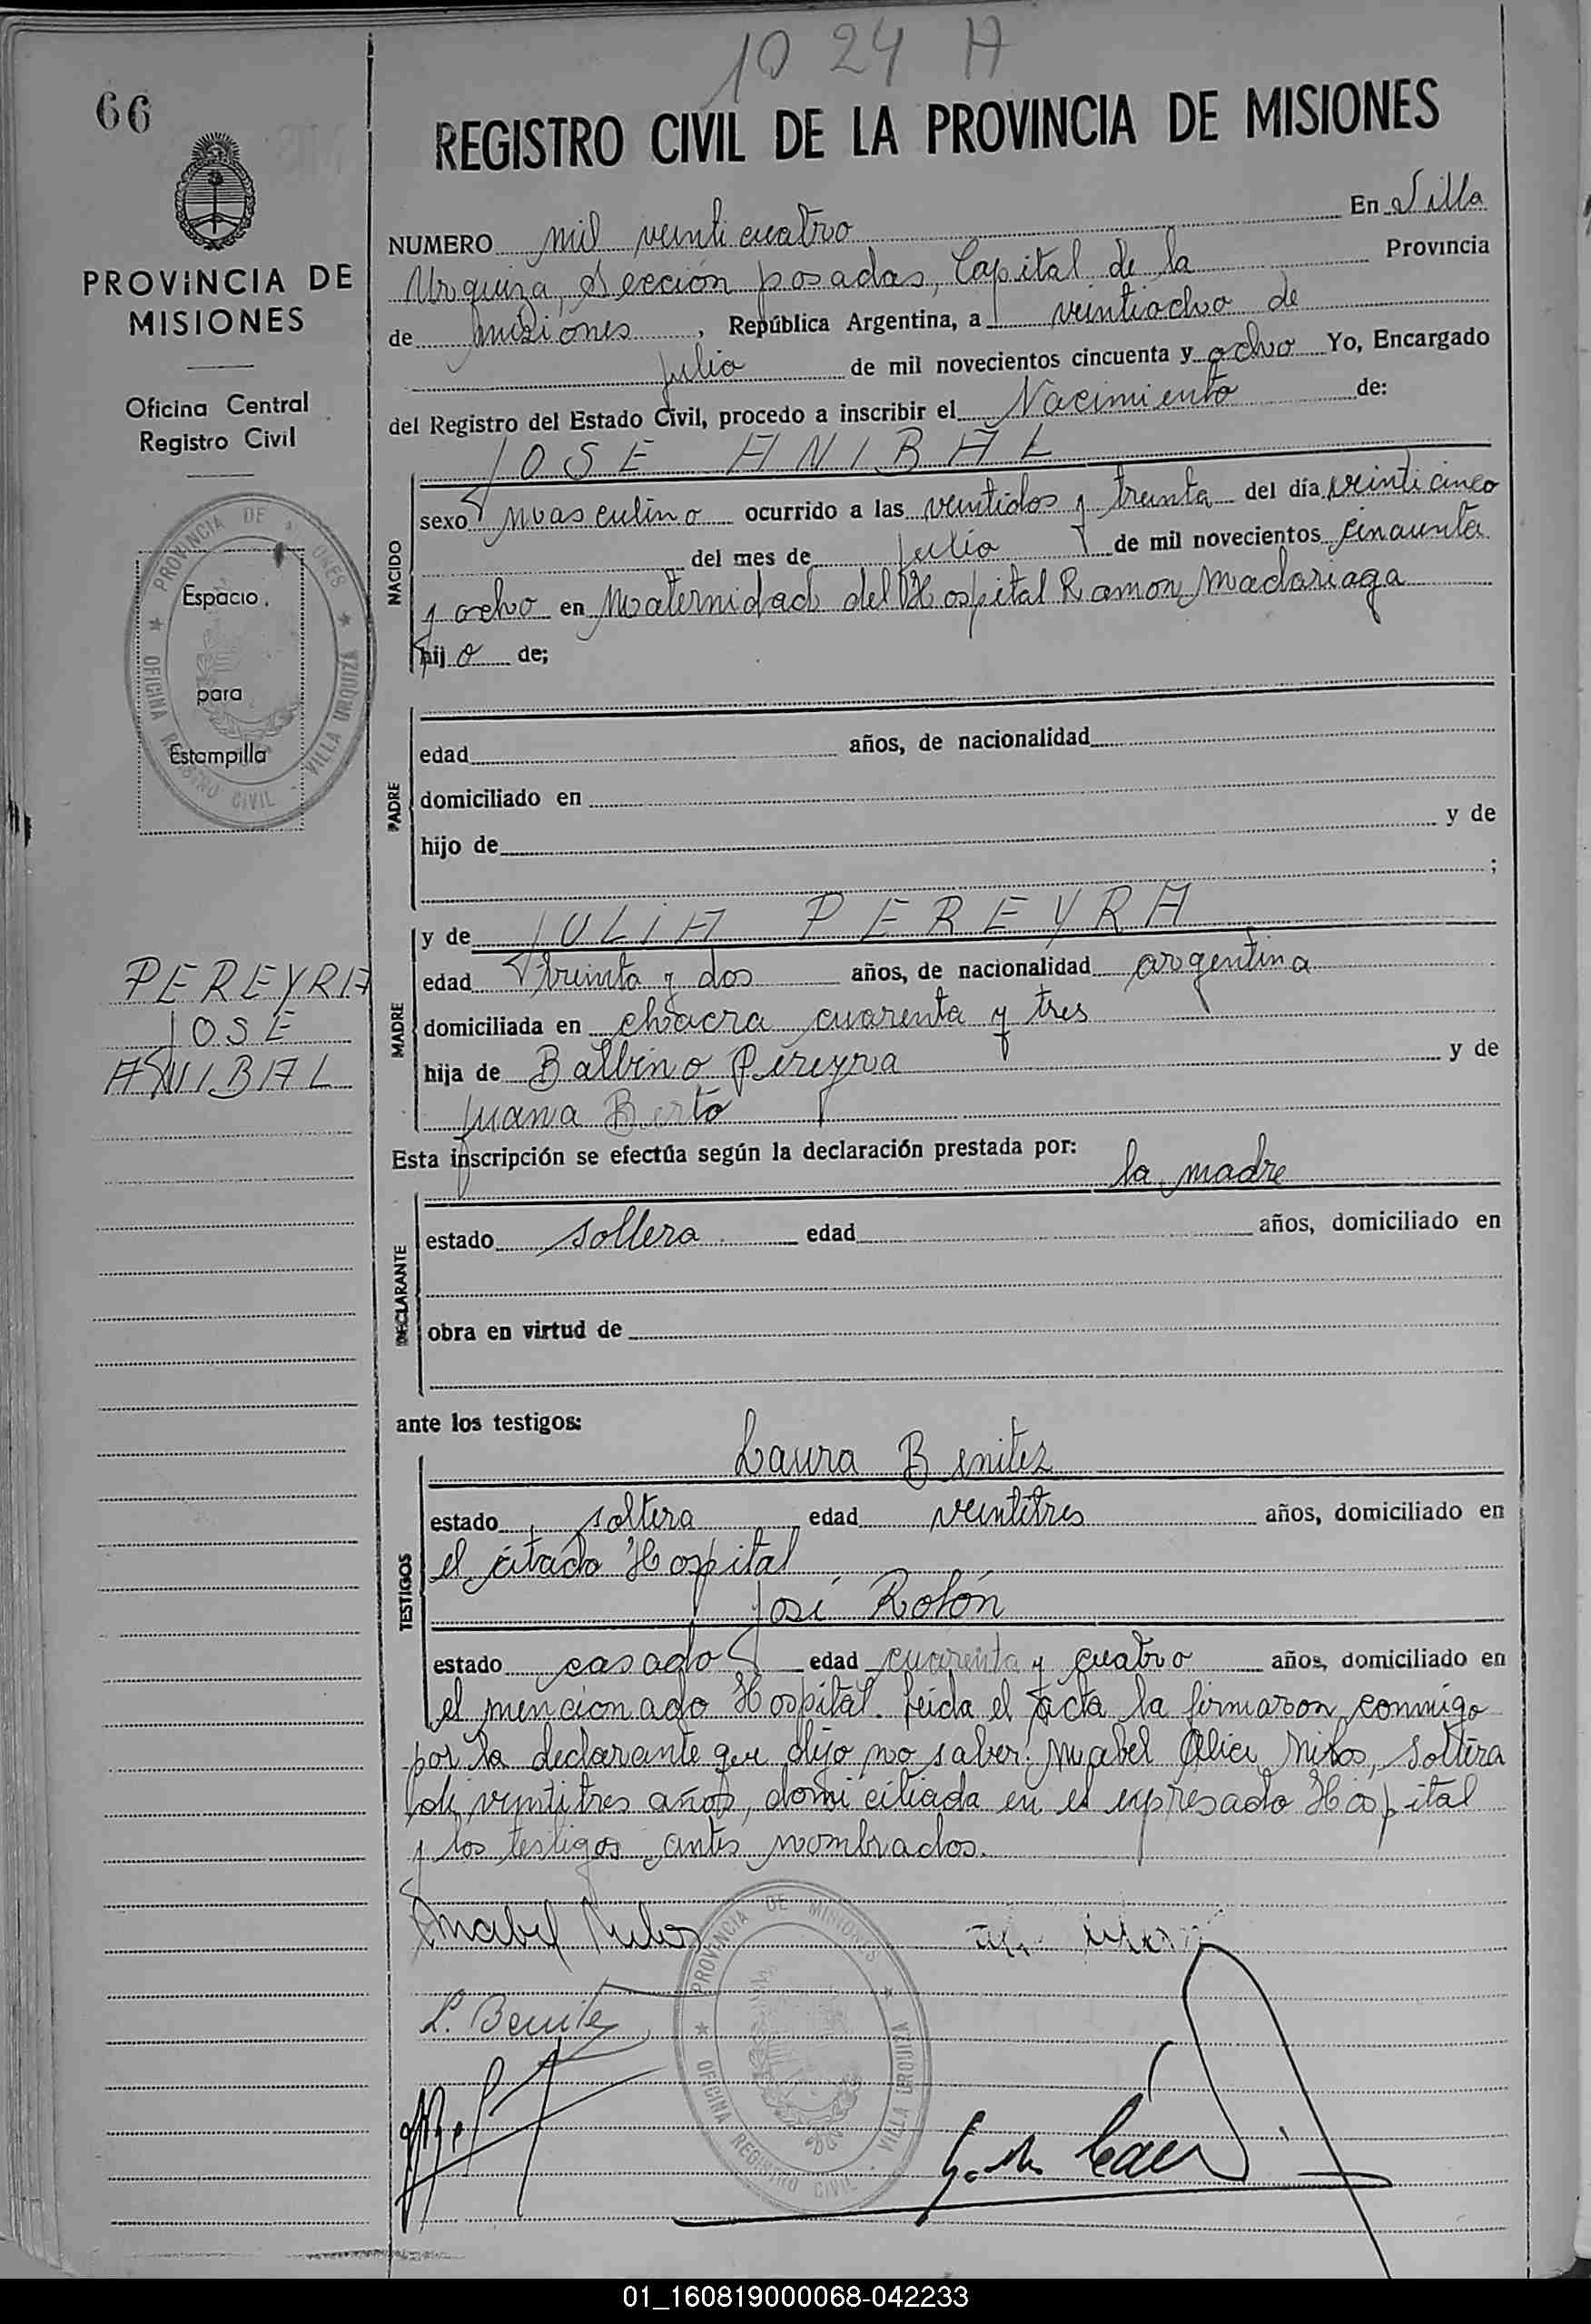 1024 A
66
REGISTRO CIVIL DE LA PROVINCIA DE MISIONES
PROVINCIA DE
MISIONES
Oficina Central
Registro Civil
PROVINCIA DE MISIONES
OFICINA REGISTRO CIVIL - VILLA URQUIZA
Espacio
para
Estampilla
PEREYRA
JOSE
ANIBAL
NUMERO mil veinticuatro En Villa
Urquiza, Sección posadas, Capital de la Provincia
de Misiones, República Argentina, a veintiocho de
julio de mil novecientos cincuenta y ocho Yo, Encargado
del Registro del Estado Civil, procedo a inscribir el Nacimiento de:
JOSE ANIBAL
NACIDO
sexo masculino ocurrido a las veintidos y treinta del día veinticinco
del mes de julio de mil novecientos cincuenta
y ocho en Maternidad del Hospital Ramon Madariaga
hijo de;
PADRE
edad años, de nacionalidad
domiciliado en
hijo de y de
;
MADRE
y de JULIA PEREYRA
edad treinta y dos años, de nacionalidad argentina
domiciliada en chacra cuarenta y tres
hija de Balbino Pereyra y de
Juana Berto
Esta inscripción se efectúa según la declaración prestada por:
la madre
DECLARANTE
estado soltera edad años, domiciliado en
obra en virtud de
ante los testigos:
TESTIGOS
Laura Benitez
estado soltera edad veintitres años, domiciliado en
el citado Hospital
José Rolón
estado casado edad cuarenta y cuatro años, domiciliado en
el mencionado Hospital. Leida el acta la firmaron conmigo
por la declarante que dijo no saber: Mabel Alicia, soltera
de veintitres años, domiciliada en el expresado Hospital
y los testigos antes nombrados.
L. Benitez
PROVINCIA DE MISIONES
OFICINA REGISTRO CIVIL - VILLA URQUIZA
01_160819000068-042233